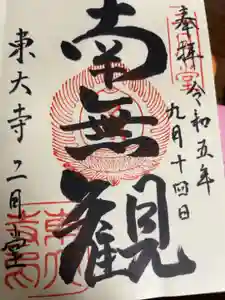 奉拝 令和五年
九月十四日
南無観
東大寺 二月堂